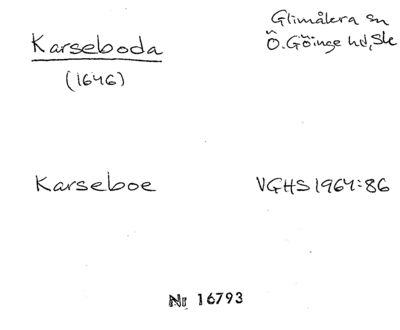 Karseboda
(1646)
Glimåkra sn
Ö. Göinge hd, Sk
Karseboe
VGHS 1964:86
Nr 16793